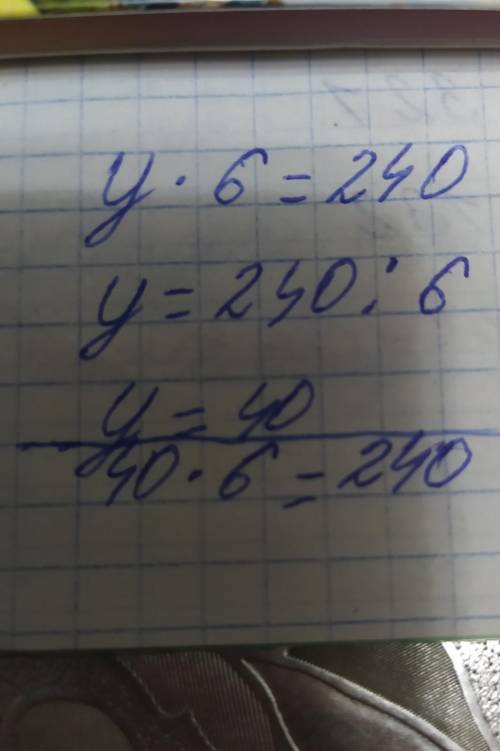 y · 6 = 240
y = 240 : 6
y = 40
40 · 6 = 240